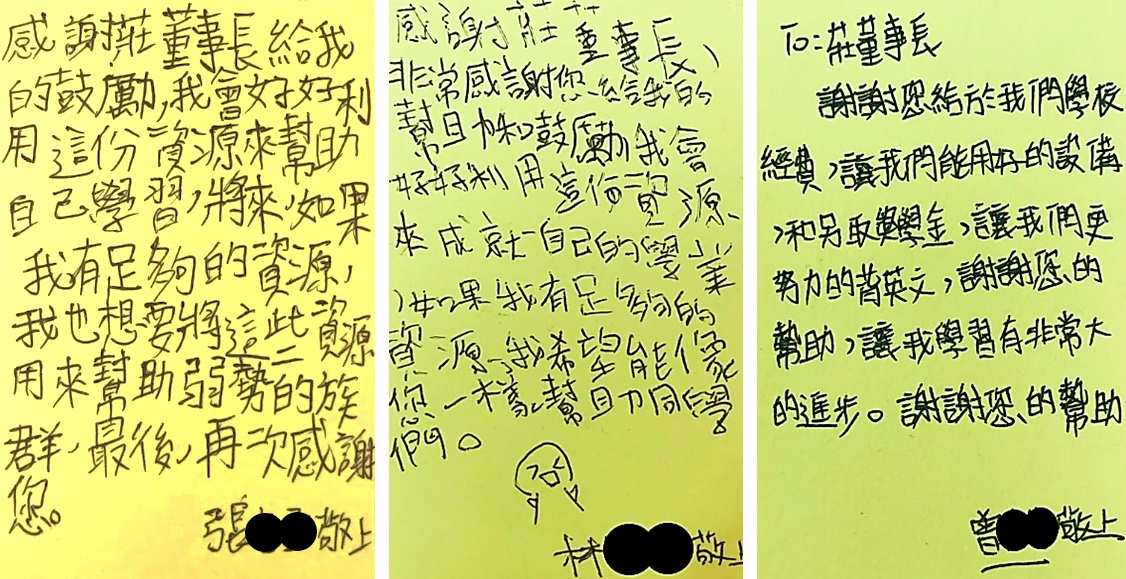 感謝莊董事長給我
的鼓勵,我會好好利
用這份資源來幫助
自己學習,將來,如果
我有足夠的資源,
我也想要將這些資源
用來幫助弱勢的族
群,最後,再次感謝
您。
張 敬上
感謝莊董事長,
非常感謝您給我的
幫助和鼓勵我會
好好利用這份資源
來成就自己的學業
,如果我有足夠的
資源,我希望能像
您一樣,幫助同學
們。
林 敬上
To:莊董事長
謝謝您給於我們學校
經費,讓我們能用好的設備
,和另取獎學金,讓我們更
努力的背英文,謝謝您的
幫助,讓我學習有非常大
的進步。謝謝您的幫助
曾 敬上